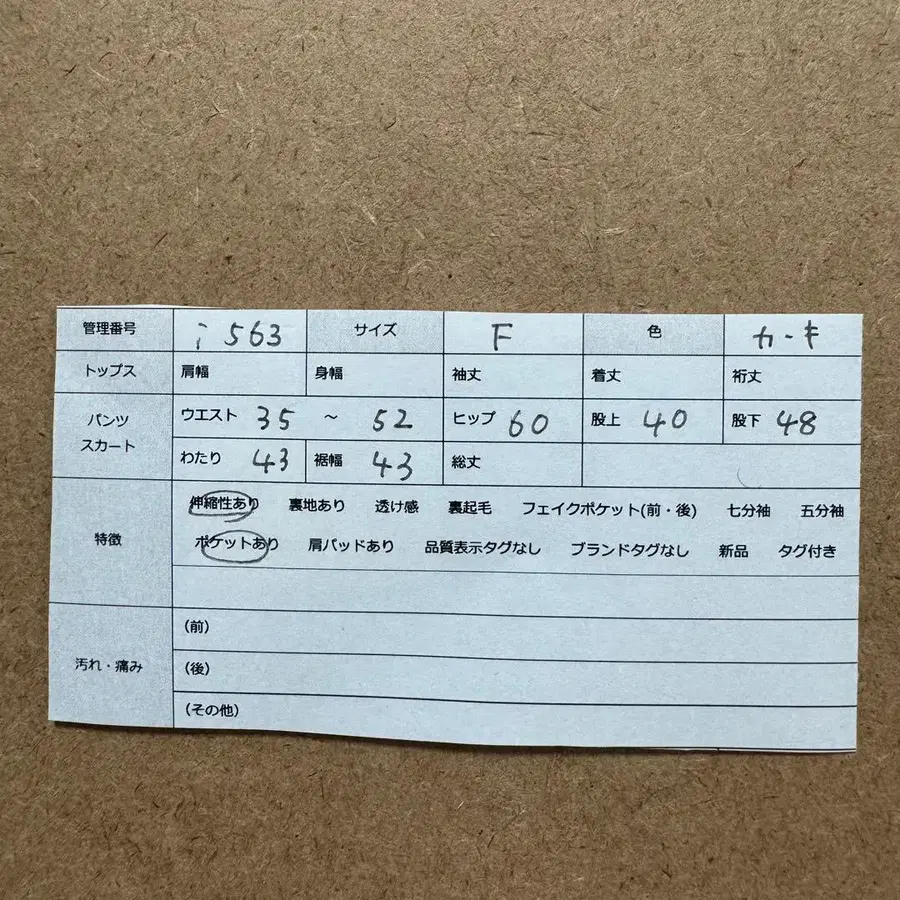 管理番号 i 563 サイズ F 色 カーキ
トップス 肩幅 身幅 袖丈 着丈 裄丈
パンツ スカート ウエスト 35 ~ 52 ヒップ 60 股上 40 股下 48
わたり 43 裾幅 43 総丈
特徴 伸縮性あり 裏地あり 透け感 裏起毛 フェイクポケット(前・後) 七分袖 五分袖
ポケットあり 肩パッドあり 品質表示タグなし ブランドタグなし 新品 タグ付き
汚れ・痛み (前)
(後)
(その他)